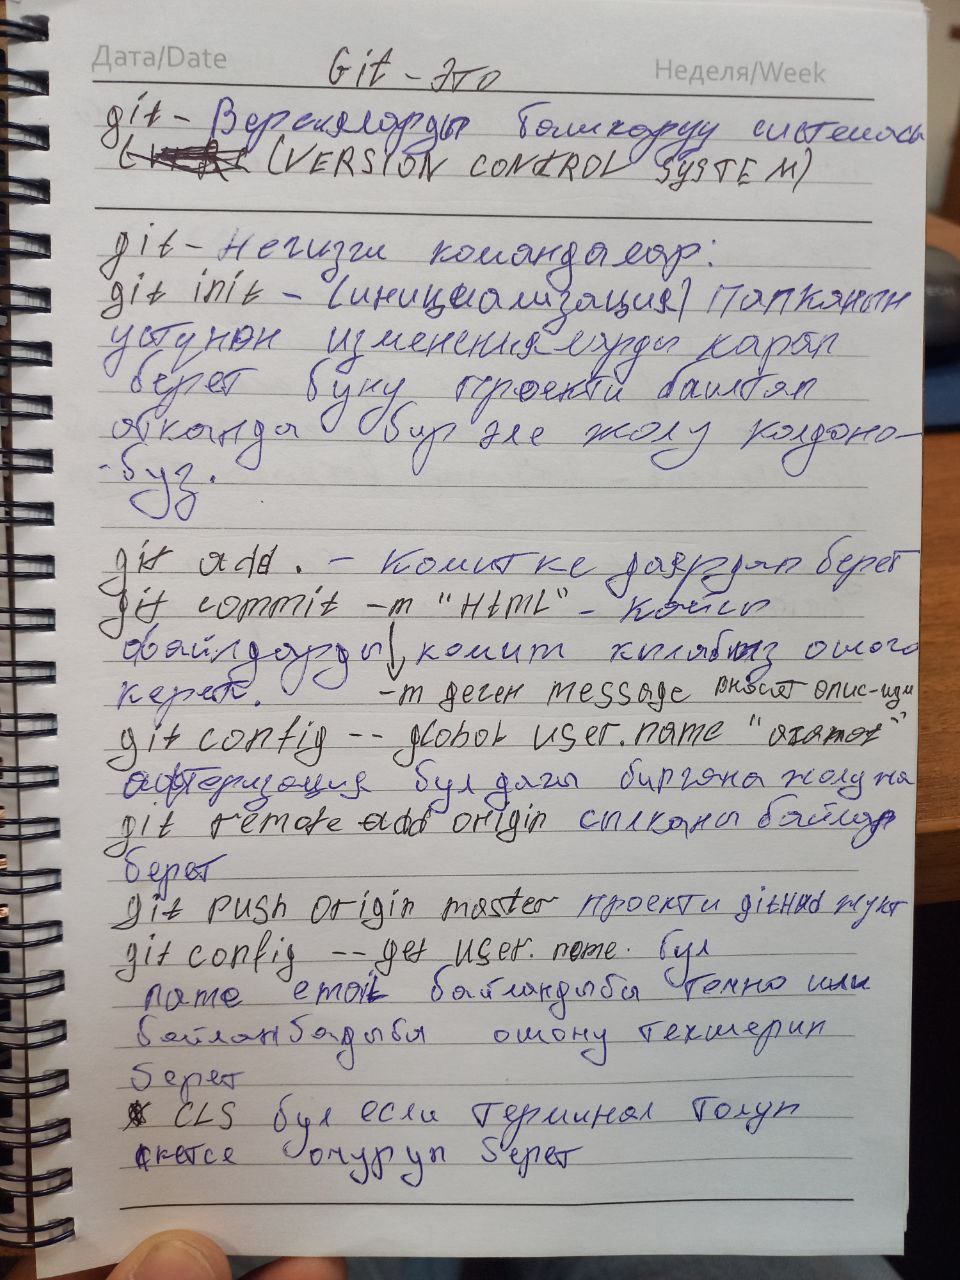 Дата/Date
Git - это
Неделя/Week
git - Версияларды башкаруу системасы
(VERSION CONTROL SYSTEM)
git - Негизги командалар:
git init - (инициализация) Папканын
устунон измененияларды карап
берет буну проекти баштап
атканда бир эле жолу колдоно-
-буз.
git add . - комитке даярдап берет
git commit -m "HtmL" - кайсы
файлдарды комит кылабыз ошого
керек. -m деген message вносят опис-изм
git config -- global user.name
афтеризация бул дагы биргана жолу на
git remote add origin сылканы байлап
берет
git push origin master проекти gitHub жукт
git config -- get user.name. бул
name email байландыбы темно или
байланбадыбы ошону текшерип
берет
CLS бул если терминал толуп
кетсе очуруп берет